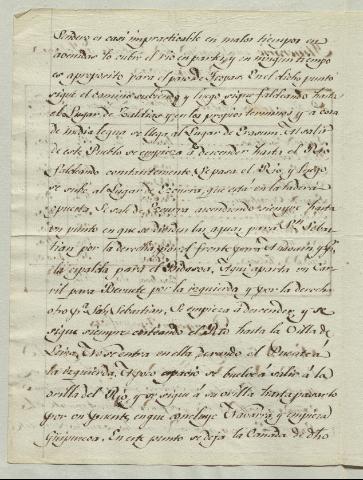 Sendero es casi impracticable en malos tiempos en
avenidas lo cubre el rio en partes y en ningun tiempo
es aproposito para el paso de Tropas. En el dicho punto
sigue el camino subiendo y luego sigue faldeando hasta
el Lugar de Zaldias y en los propios terminos y a cosa
de media legua se llega al Lugar de Erasun. Al salir
de este Pueblo se empieza á descender hasta el Rio
faldeando constantemente. Se pasa el Rio, y luego
se sube al Lugar de Ezcurra que está en la ladera
opuesta. Se sale de Ezcurra ascendiendo siempre hasta
un punto en que se dividen las aguas para Sn. Sebas-
tian por la derecha, por el frente para Andoain y pr.
la espalda para el Bidasoa. Aqui aparta un Car-
ril para Beruete por la izquierda y por la derecha
otro pa. San Sebastian. Se empieza á descender, y se
sigue siempre costeando el Rio hasta la Villa de
Leiza. No se entra en ella dexando el Puente á
la izquierda. A poco espacio se buelve á salir á la
orilla del Rio, y se sigue á su orilla hasta pasarlo
por un puente en que concluye Navarra y empieza
Guipuzcoa. En este punto se deja la Cañada de dho